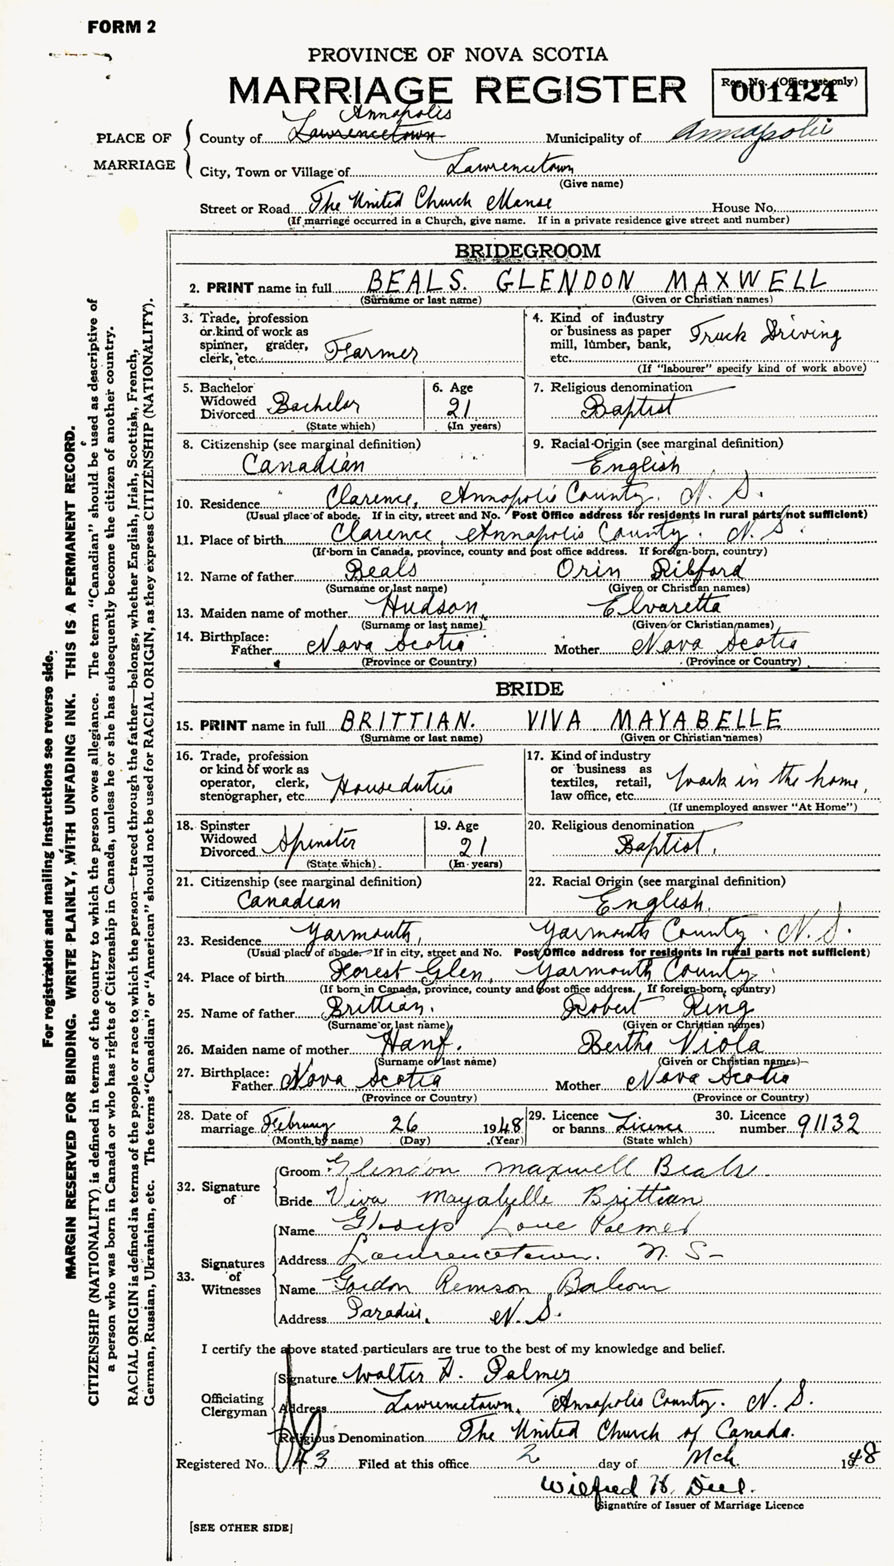 FORM 2
PROVINCE OF NOVA SCOTIA
MARRIAGE REGISTER
Reg. No. (Office use only)
001424
PLACE OF MARRIAGE
Annapolis
County of Lawrencetown Municipality of Annapolis
City, Town or Village of Lawrencetown
(Give name)
Street or Road The United Church Manse House No.
(If marriage occurred in a Church, give name. If in a private residence give street and number)
BRIDEGROOM
2. PRINT name in full BEALS. GLENDON MAXWELL
(Surname or last name) (Given or Christian names)
3. Trade, profession
or kind of work as
spinner, grader,
clerk, etc. Farmer
4. Kind of industry
or business as paper
mill, lumber, bank,
etc. Truck Driving
(If "labourer" specify kind of work above)
5. Bachelor
Widowed
Divorced Bachelor
(State which)
6. Age
21
(In years)
7. Religious denomination
Baptist
8. Citizenship (see marginal definition)
Canadian
9. Racial Origin (see marginal definition)
English
10. Residence Clarence, Annapolis County. N. S.
(Usual place of abode. If in city, street and No. Post Office address for residents in rural parts not sufficient)
11. Place of birth Clarence, Annapolis County. N. S.
(If born in Canada, province, county and post office address. If foreign-born, country)
12. Name of father Beals Orin Rilford
(Surname or last name) (Given or Christian names)
13. Maiden name of mother Hudson, Elvaretta
(Surname or last name) (Given or Christian names)
14. Birthplace:
Father Nova Scotia Mother Nova Scotia
(Province or Country) (Province or Country)
BRIDE
15. PRINT name in full BRITTIAN. VIVA MAYABELLE
(Surname or last name) (Given or Christian names)
16. Trade, profession
or kind of work as
operator, clerk,
stenographer, etc. Houseduties
17. Kind of industry
or business as
textiles, retail,
law office, etc. work in the home,
(If unemployed answer "At Home")
18. Spinster
Widowed
Divorced Spinster
(State which)
19. Age
21
(In years)
20. Religious denomination
Baptist.
21. Citizenship (see marginal definition)
Canadian
22. Racial Origin (see marginal definition)
English.
23. Residence Yarmouth, Yarmouth County. N. S.
(Usual place of abode. If in city, street and No. Post Office address for residents in rural parts not sufficient)
24. Place of birth Forest Glen, Yarmouth County.
(If born in Canada, province, county and post office address. If foreign-born, country)
25. Name of father Brittian. Robert Ring
(Surname or last name) (Given or Christian names)
26. Maiden name of mother Hanf. Bertha Viola
(Surname or last name) (Given or Christian names)
27. Birthplace:
Father Nova Scotia Mother Nova Scotia
(Province or Country) (Province or Country)
28. Date of
marriage February 26 1948
(Month by name) (Day) (Year)
29. Licence
or banns Licence
(State which)
30. Licence
number 91132
32. Signature of
Groom Glendon Maxwell Beals
Bride Viva Mayabelle Brittian
33. Signatures of Witnesses
Name Gladys Love Palmer
Address Lawrencetown. N. S-
Name Gordon Remson Balcom
Address Paradise, N. S.
I certify the above stated particulars are true to the best of my knowledge and belief.
Officiating Clergyman
Signature Walter H. Palmer
Address Lawrencetown, Annapolis County. N. S.
Religious Denomination The United Church of Canada.
Registered No. 43 Filed at this office 2 day of Mch 1948
Wilfred H. Deel.
Signature of Issuer of Marriage Licence
[SEE OTHER SIDE]
For registration and mailing instructions see reverse side.
MARGIN RESERVED FOR BINDING. WRITE PLAINLY, WITH UNFADING INK. THIS IS A PERMANENT RECORD.
CITIZENSHIP (NATIONALITY) is defined in terms of the country to which the person owes allegiance. The term "Canadian" should be used as descriptive of
a person who was born in Canada or who has rights of Citizenship in Canada, unless he or she has subsequently become the citizen of another country.
RACIAL ORIGIN is defined in terms of the people or race to which the person—traced through the father—belongs, whether English, Irish, Scottish, French,
German, Russian, Ukrainian, etc. The terms "Canadian" or "American" should not be used for RACIAL ORIGIN, as they express CITIZENSHIP (NATIONALITY).